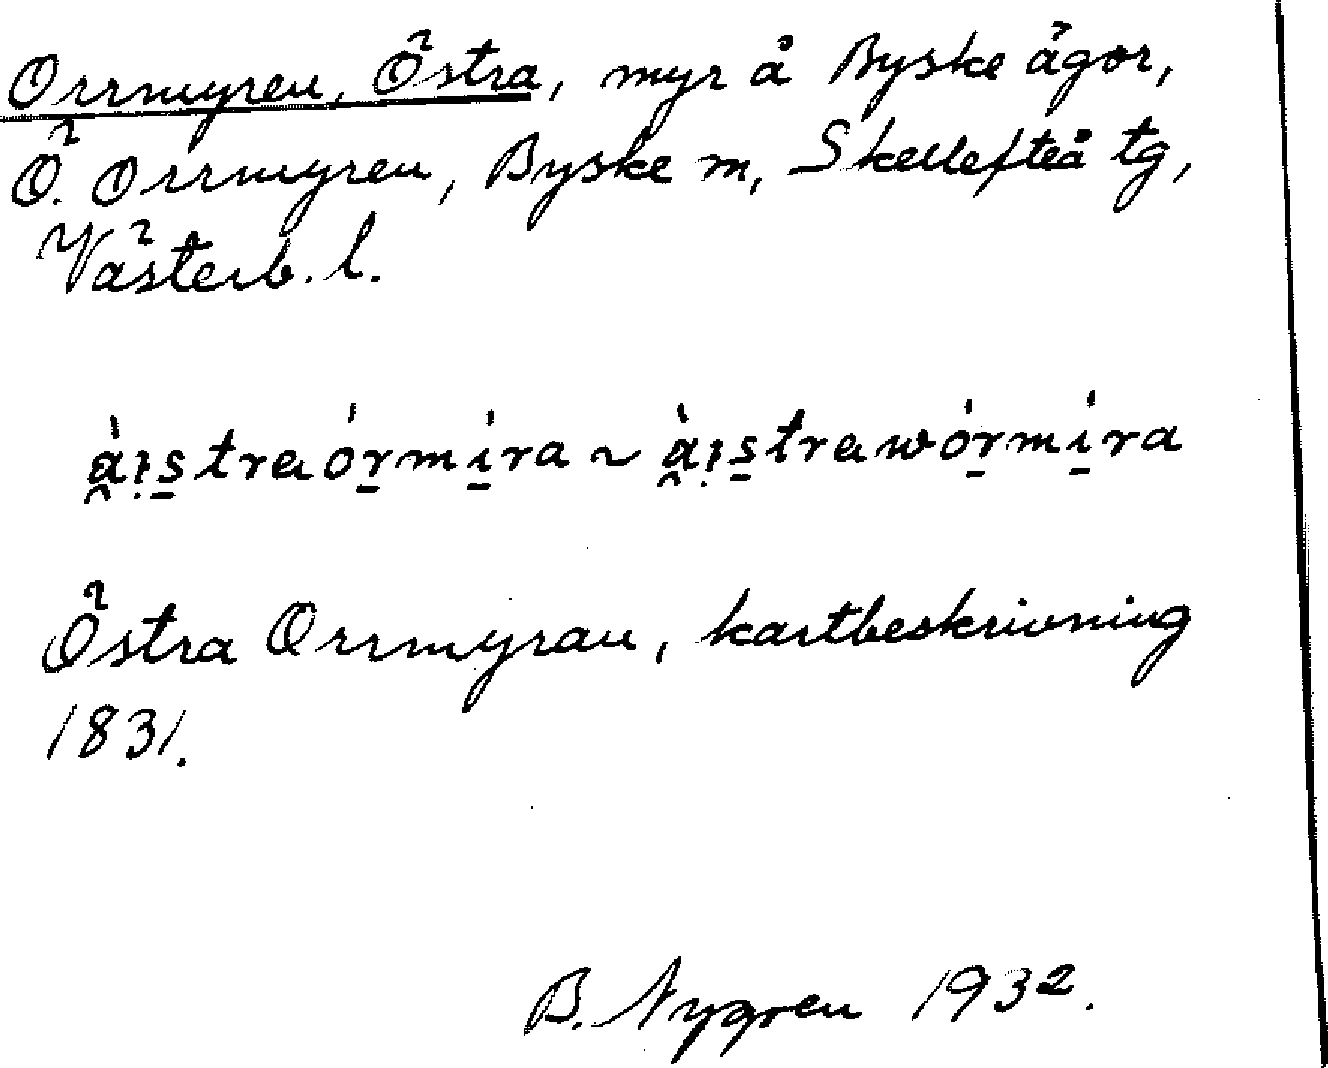 Orrmyren, Östra, myr å Byske ägor,
Ö. Orrmyren, Byske m, Skellefteå tg,
Västerb. l.
àı̣s̱traóṟmı̱́ra ~ àı̣s̱trawóṟmı̱́ra
Östra Orrmyran, kartbeskrivning
1831.
B. Nygren 1932.